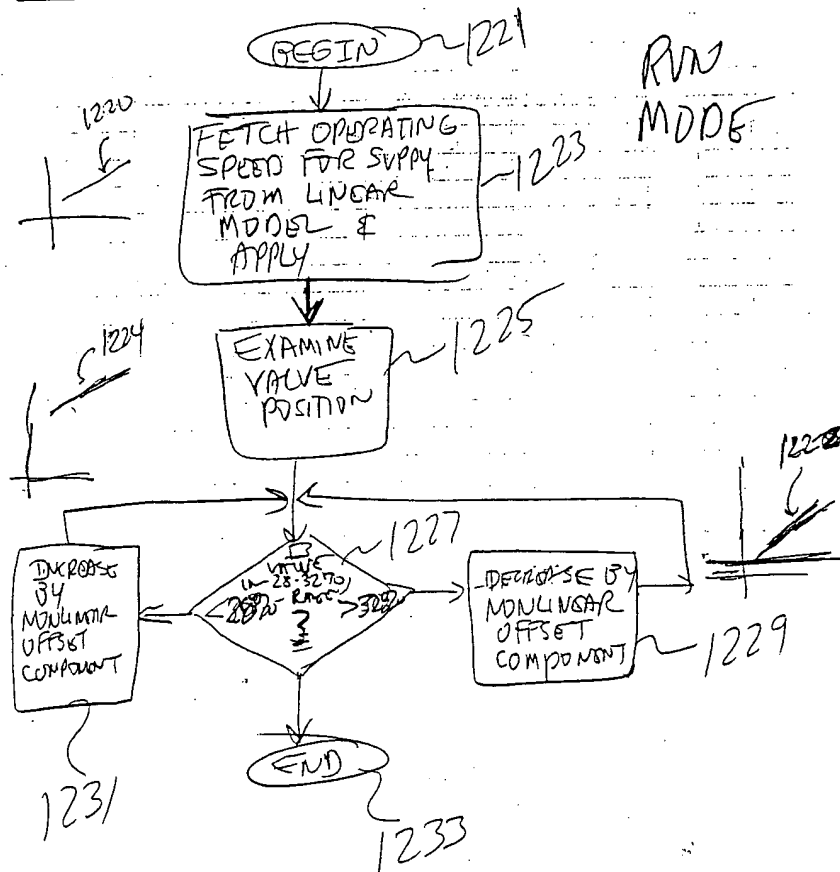 BEGIN
1221
RUN
MODE
1220
FETCH OPERATING
SPEED FOR SUPPLY
FROM LINEAR
MODEL &
APPLY
1223
1224
EXAMINE
VALVE
POSITION
1225
IS
VALVE
IN 28-32%
RANGE
?
<28%
>32%
1227
INCREASE
BY
NONLINEAR
OFFSET
COMPONENT
1231
DECREASE BY
NONLINEAR
OFFSET
COMPONENT
1229
END
1233